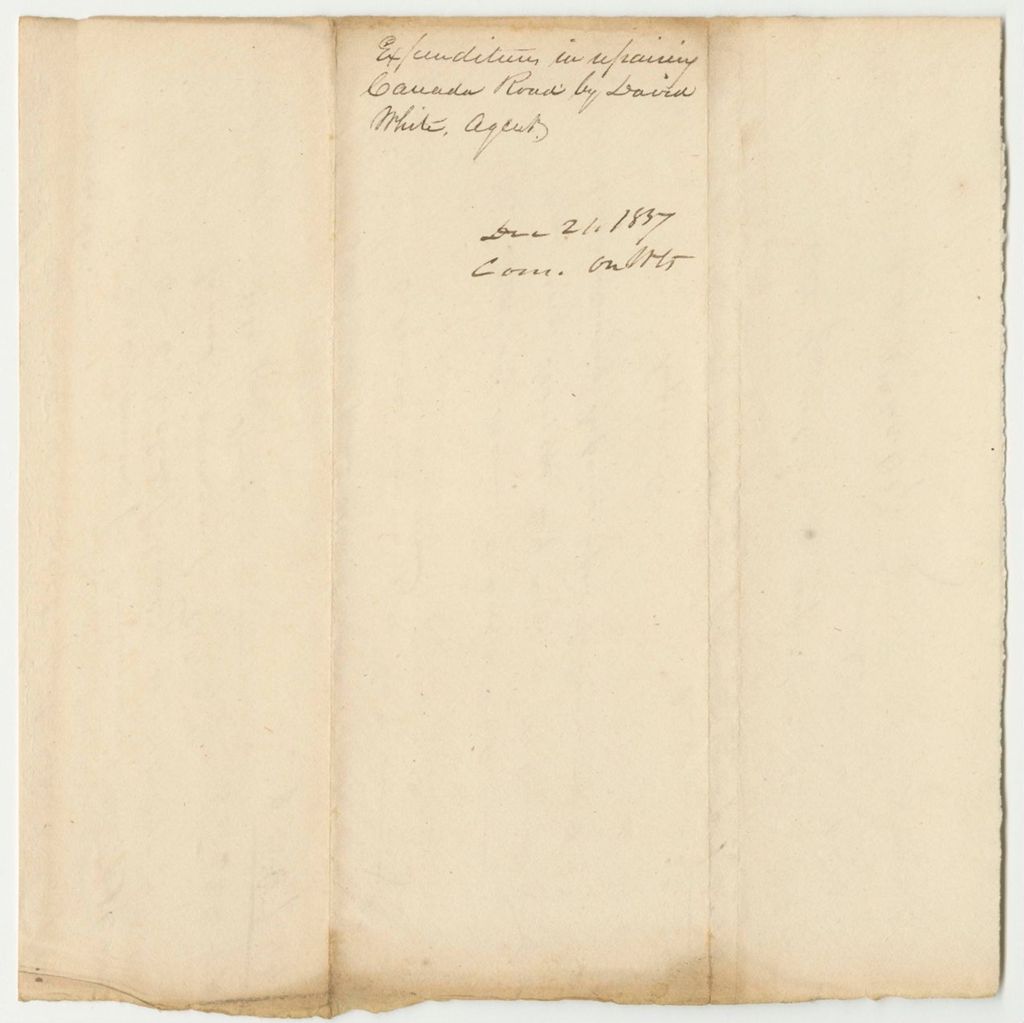 Expenditures in repairing
Canada Road by David
White, Agent
Dec 21. 1837
Com. on